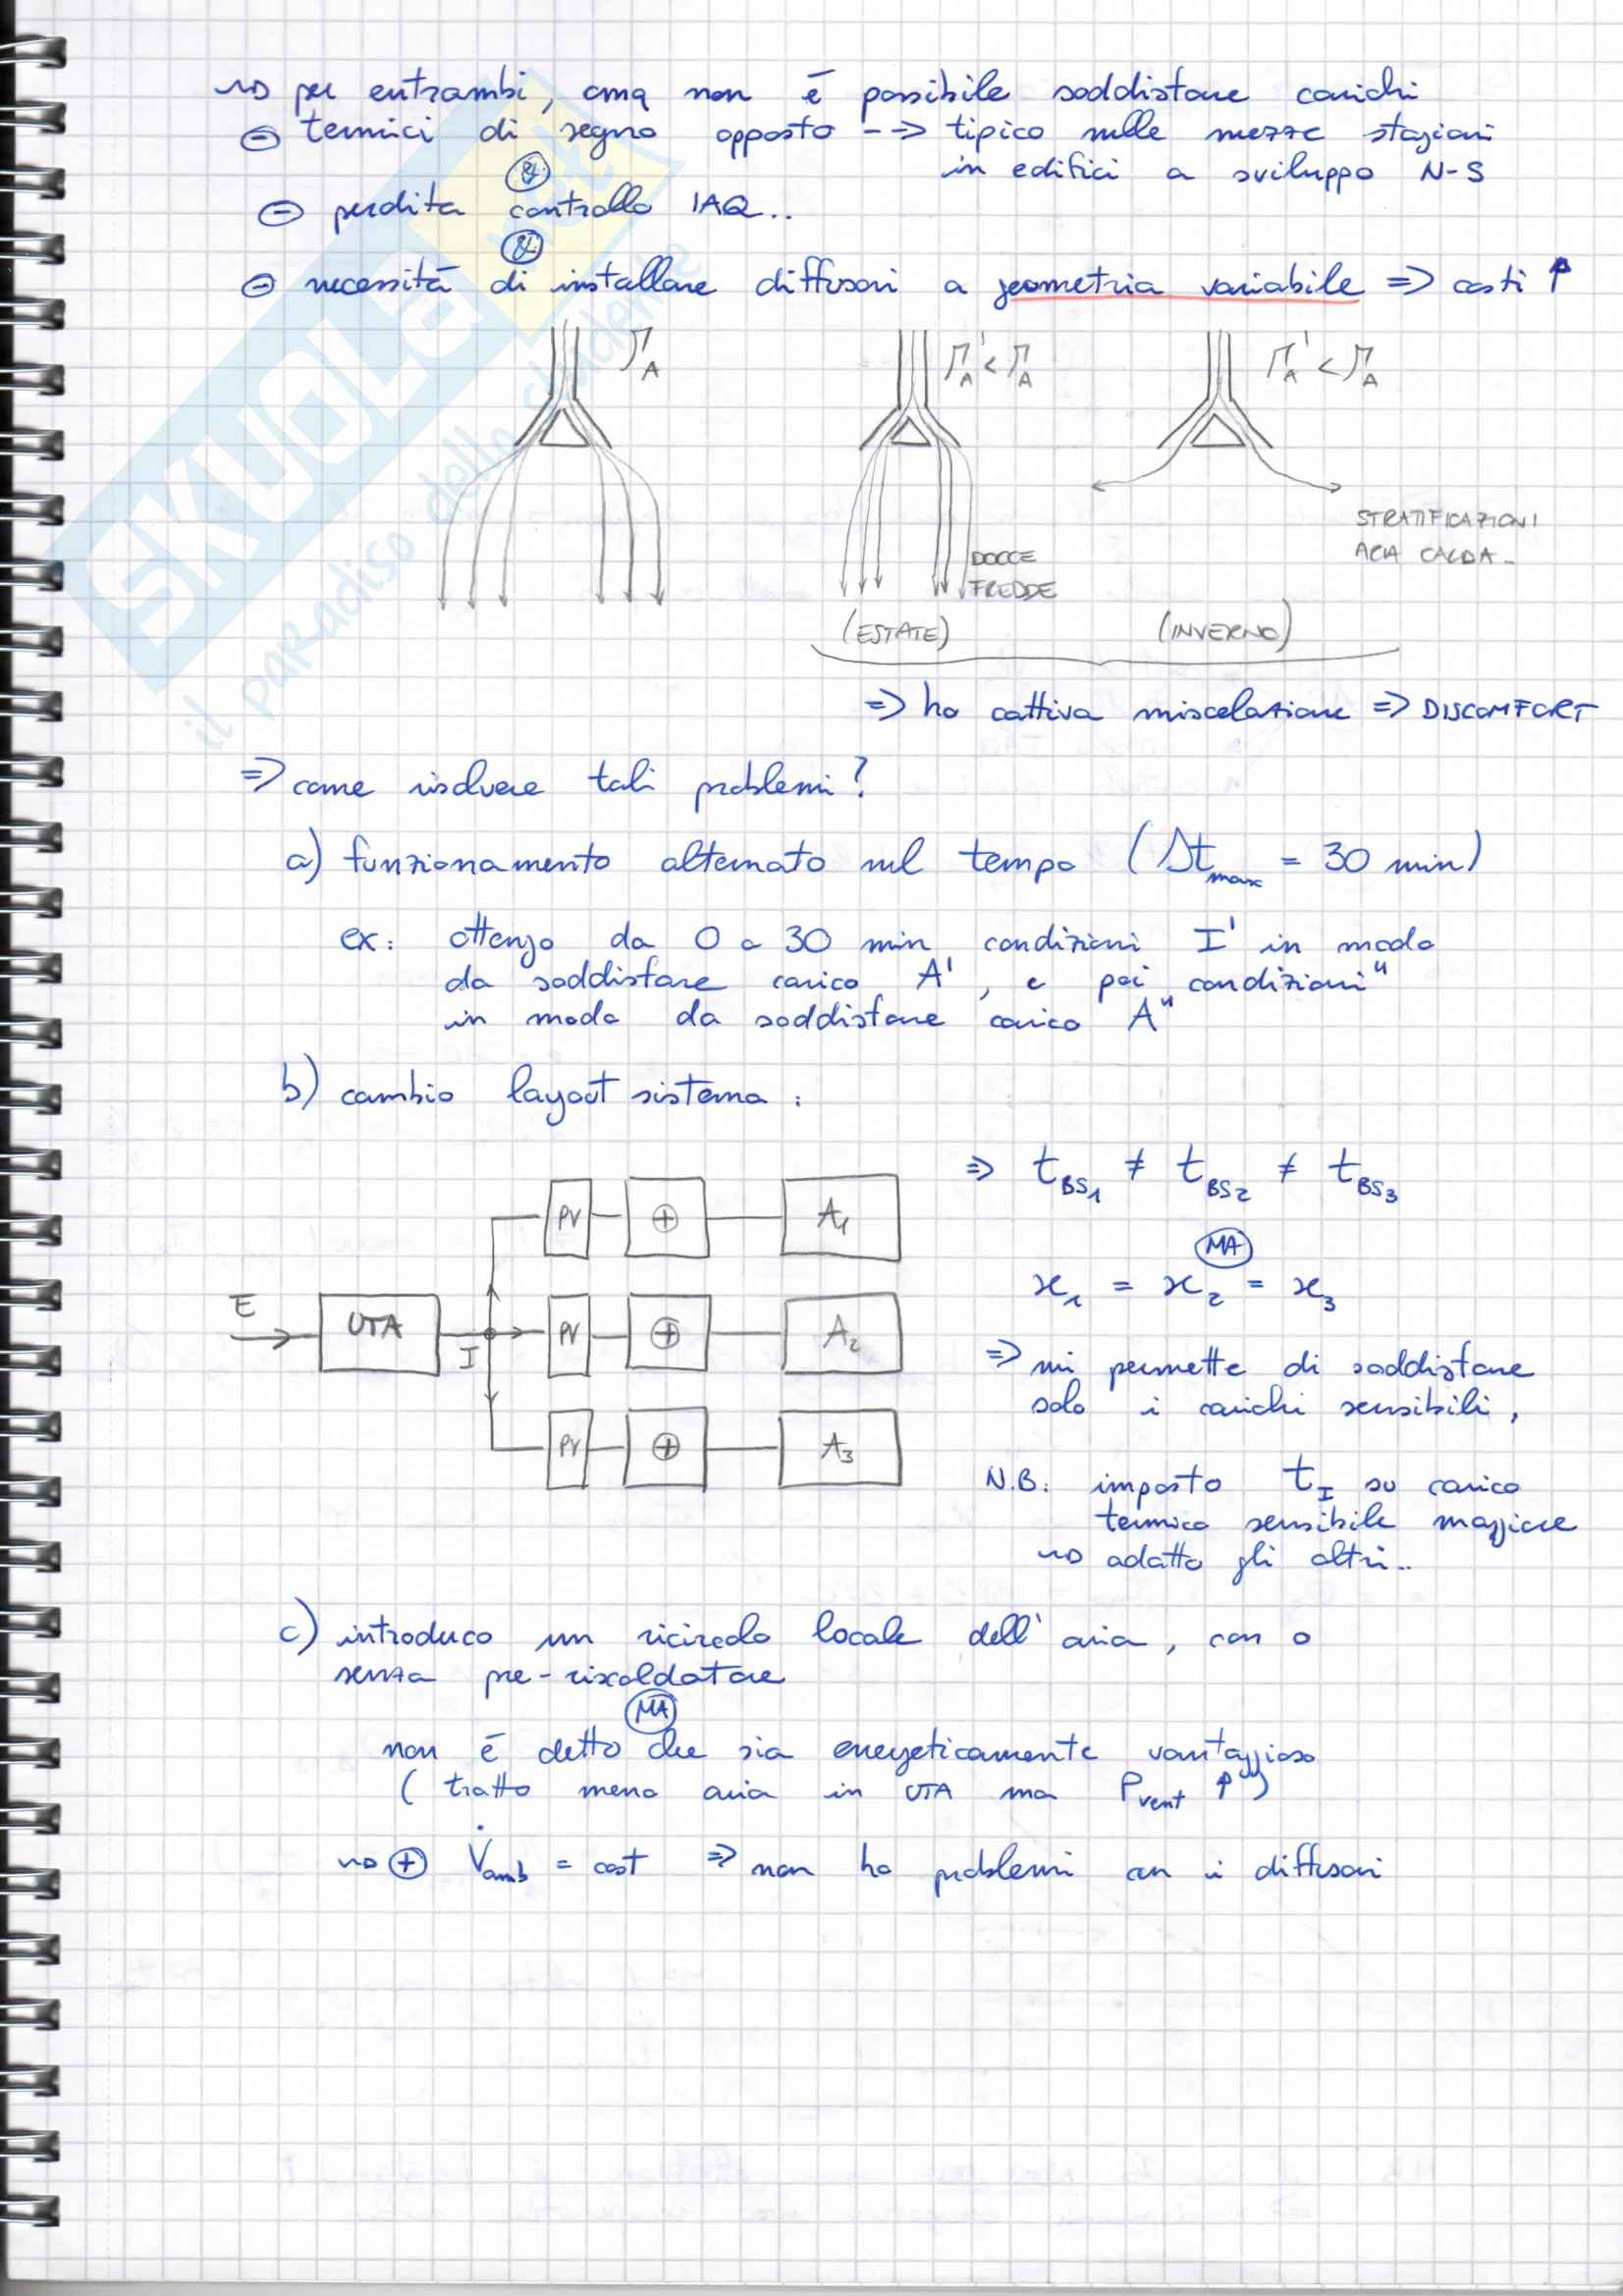 ⇝ per entrambi, cmq non è possibile soddisfare carichi
⊖ termici di segno opposto --> tipico nelle mezze stagioni
in edifici a sviluppo N-S
&
⊖ perdita controllo IAQ..
&
⊖ necessità di installare diffusori a geometria variabile => costi ↑
A
A' < A
A' < A
DOCCE
FREDDE
STRATIFICAZIONI
ARIA CALDA
(ESTATE)
(INVERNO)
=> ho cattiva miscelazione => DISCOMFORT
=> come risolvere tali problemi?
a) funzionamento alternato nel tempo (Δt max = 30 min)
ex: ottengo da 0 a 30 min condizioni I' in modo
da soddisfare carico A', e poi condizioni"
in modo da soddisfare carico A"
b) cambio layout sistema:
PV ⊕ A1
E UTA I PV ⊕ A2
PV ⊕ A3
=> tBS1 ≠ tBS2 ≠ tBS3
MA
x1 = x2 = x3
=> mi permette di soddisfare
solo i carichi sensibili,
N.B: imposto tI su carico
termico sensibile maggiore
⇝ adatto gli altri..
c) introduco un ricircolo locale dell'aria, con o
senza pre-riscaldatore
MA
non è detto che sia energeticamente vantaggioso
(tratto meno aria in UTA ma Pvent ↑)
⇝ ⊕ V̇amb = cost => non ho problemi con i diffusori
SKUOLA.net
il paradiso dello studente